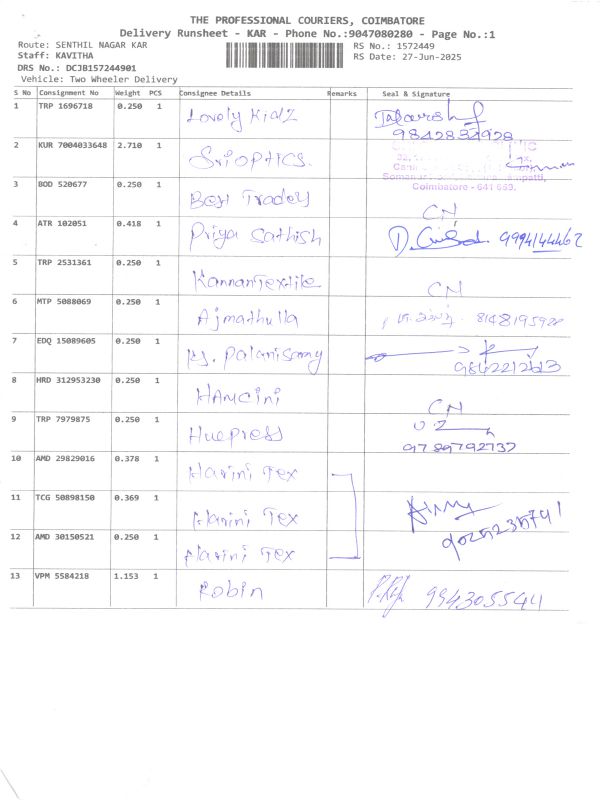 THE PROFESSIONAL COURIERS, COIMBATORE
Delivery Runsheet - KAR - Phone No.:9047080280 - Page No.:1
Route: SENTHIL NAGAR KAR RS No.: 1572449
Staff: KAVITHA RS Date: 27-Jun-2025
DRS No.: DCJB157244901
Vehicle: Two Wheeler Delivery
S No Consignment No Weight PCS Consignee Details Remarks Seal & Signature
1 TRP 1696718 0.250 1 Lovely Kidz
2 KUR 7004033648 2.710 1 Sri OPTICS.
Coimbatore - 641 659.
3 BOD 520677 0.250 1 Best Traders CN
4 ATR 102051 0.418 1 Priya Sathish 9994144462
5 TRP 2531361 0.250 1 Kannan Textile CN
6 MTP 5088069 0.250 1 Ajmathulla 8148195920
7 EDQ 15089605 0.250 1 Palanisamy
8 HRD 312953230 0.250 1 HAMCini CN
9 TRP 7979875 0.250 1 Huepress
9789792737
10 AMD 29829016 0.378 1 Harini Tex
11 TCG 50898150 0.369 1 Harini Tex
12 AMD 30150521 0.250 1 Harini Tex
13 VPM 5584218 1.153 1 Robin 994305544